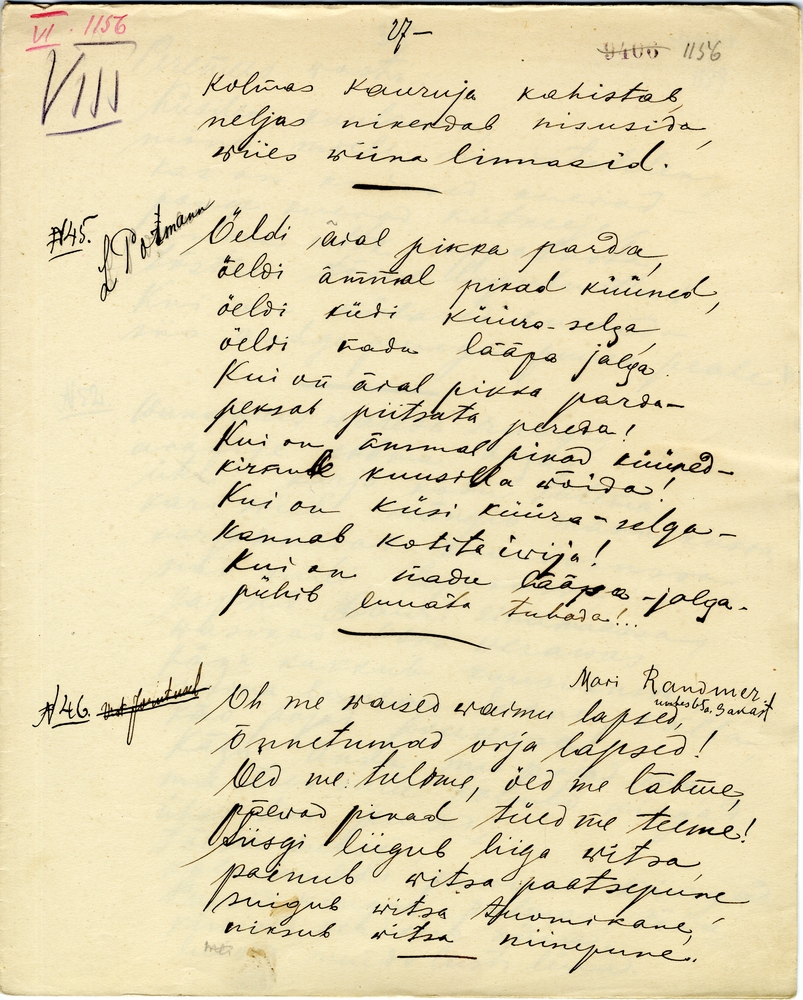 VI. 1156
27-
9406 1156
VIII
Kolmas kauruja kahistab,
neljas nikerdab nisusida,
wiies wiina linnasid.
N45.
L Potmann
Öeldi äial pikka parda,
öeldi ämmal pikad küüned,
öeldi küdi küüra-selga,
öeldi nadu lääpa jalga.
Kui on äial pikka parda-
peksab piitsata pereda!
Kui on ämmal pikad küüned-
kirnule kuusilla wõida!
Kui on küsi küüra-selga-
kannab kotita iwija!
Kui on nadu lääpa-jalga-
pühib luuata tubada!..
Mari Randmer.
umbes 65a. S
N46.
Oh me waised waimu lapsed,
õnnetumad orja lapsed!
Öed me tuldme, öed me läbime,
päewad pikad tüed me teeme!
Siisgi liigub liiga witsa,
painub witsa paatsepune,
suigub witsa toomikane,
niksub witsa niinepune.